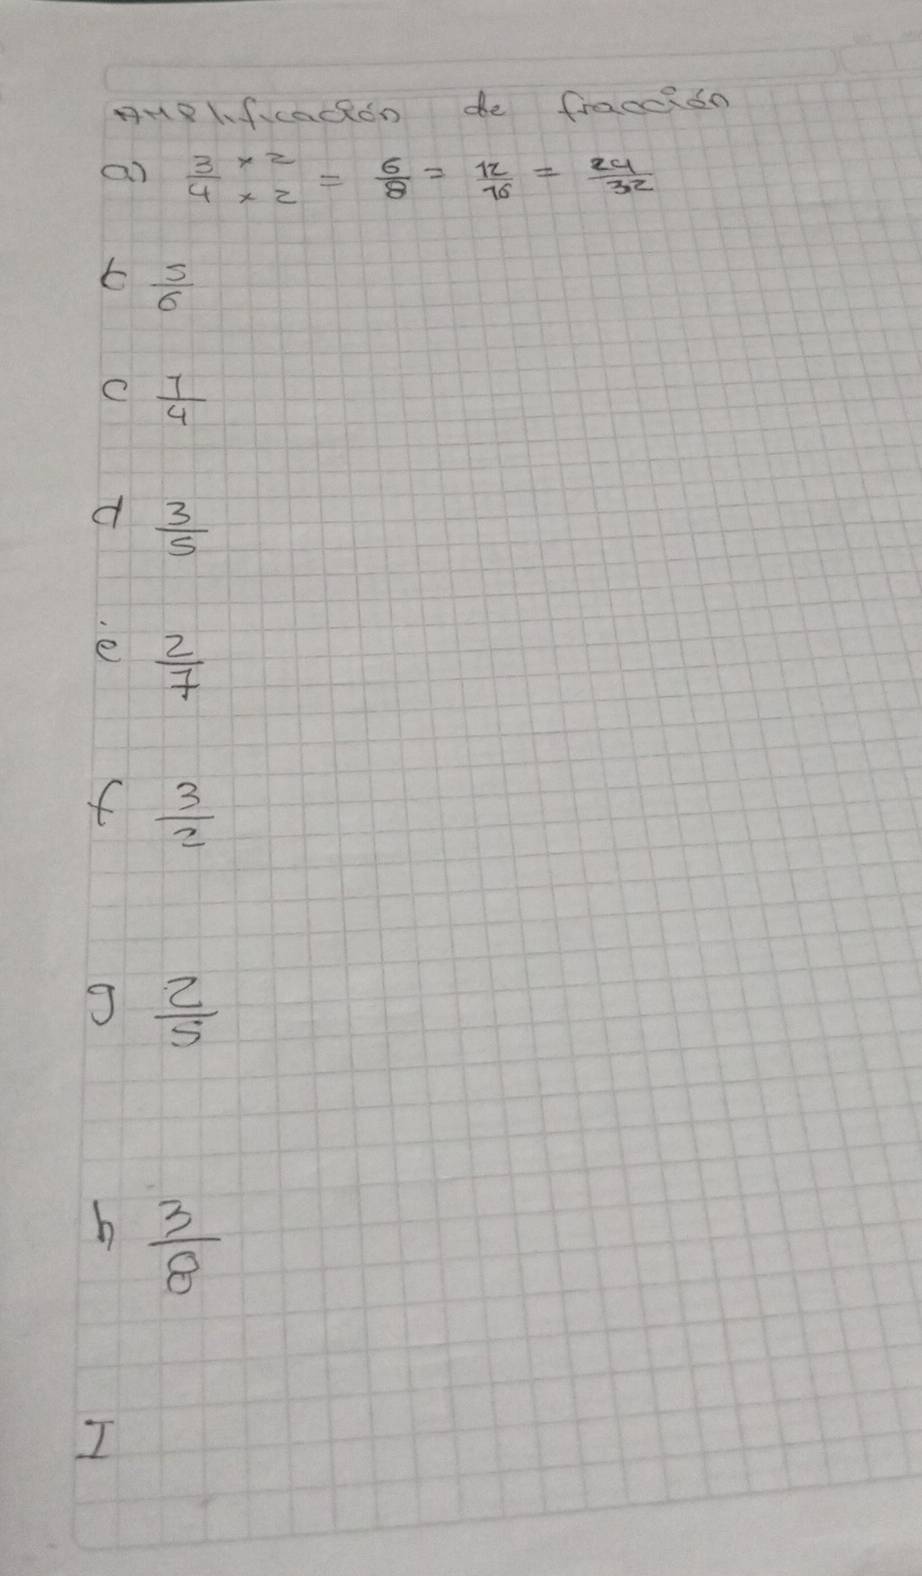 Amplificación de fracción
a) 3/4 × 2 / × 2 = 6/8 = 12/16 = 24/32
b 5/6
c 1/4
d 3/5
e 2/7
f 3/2
g 2/5
h 3/8
I